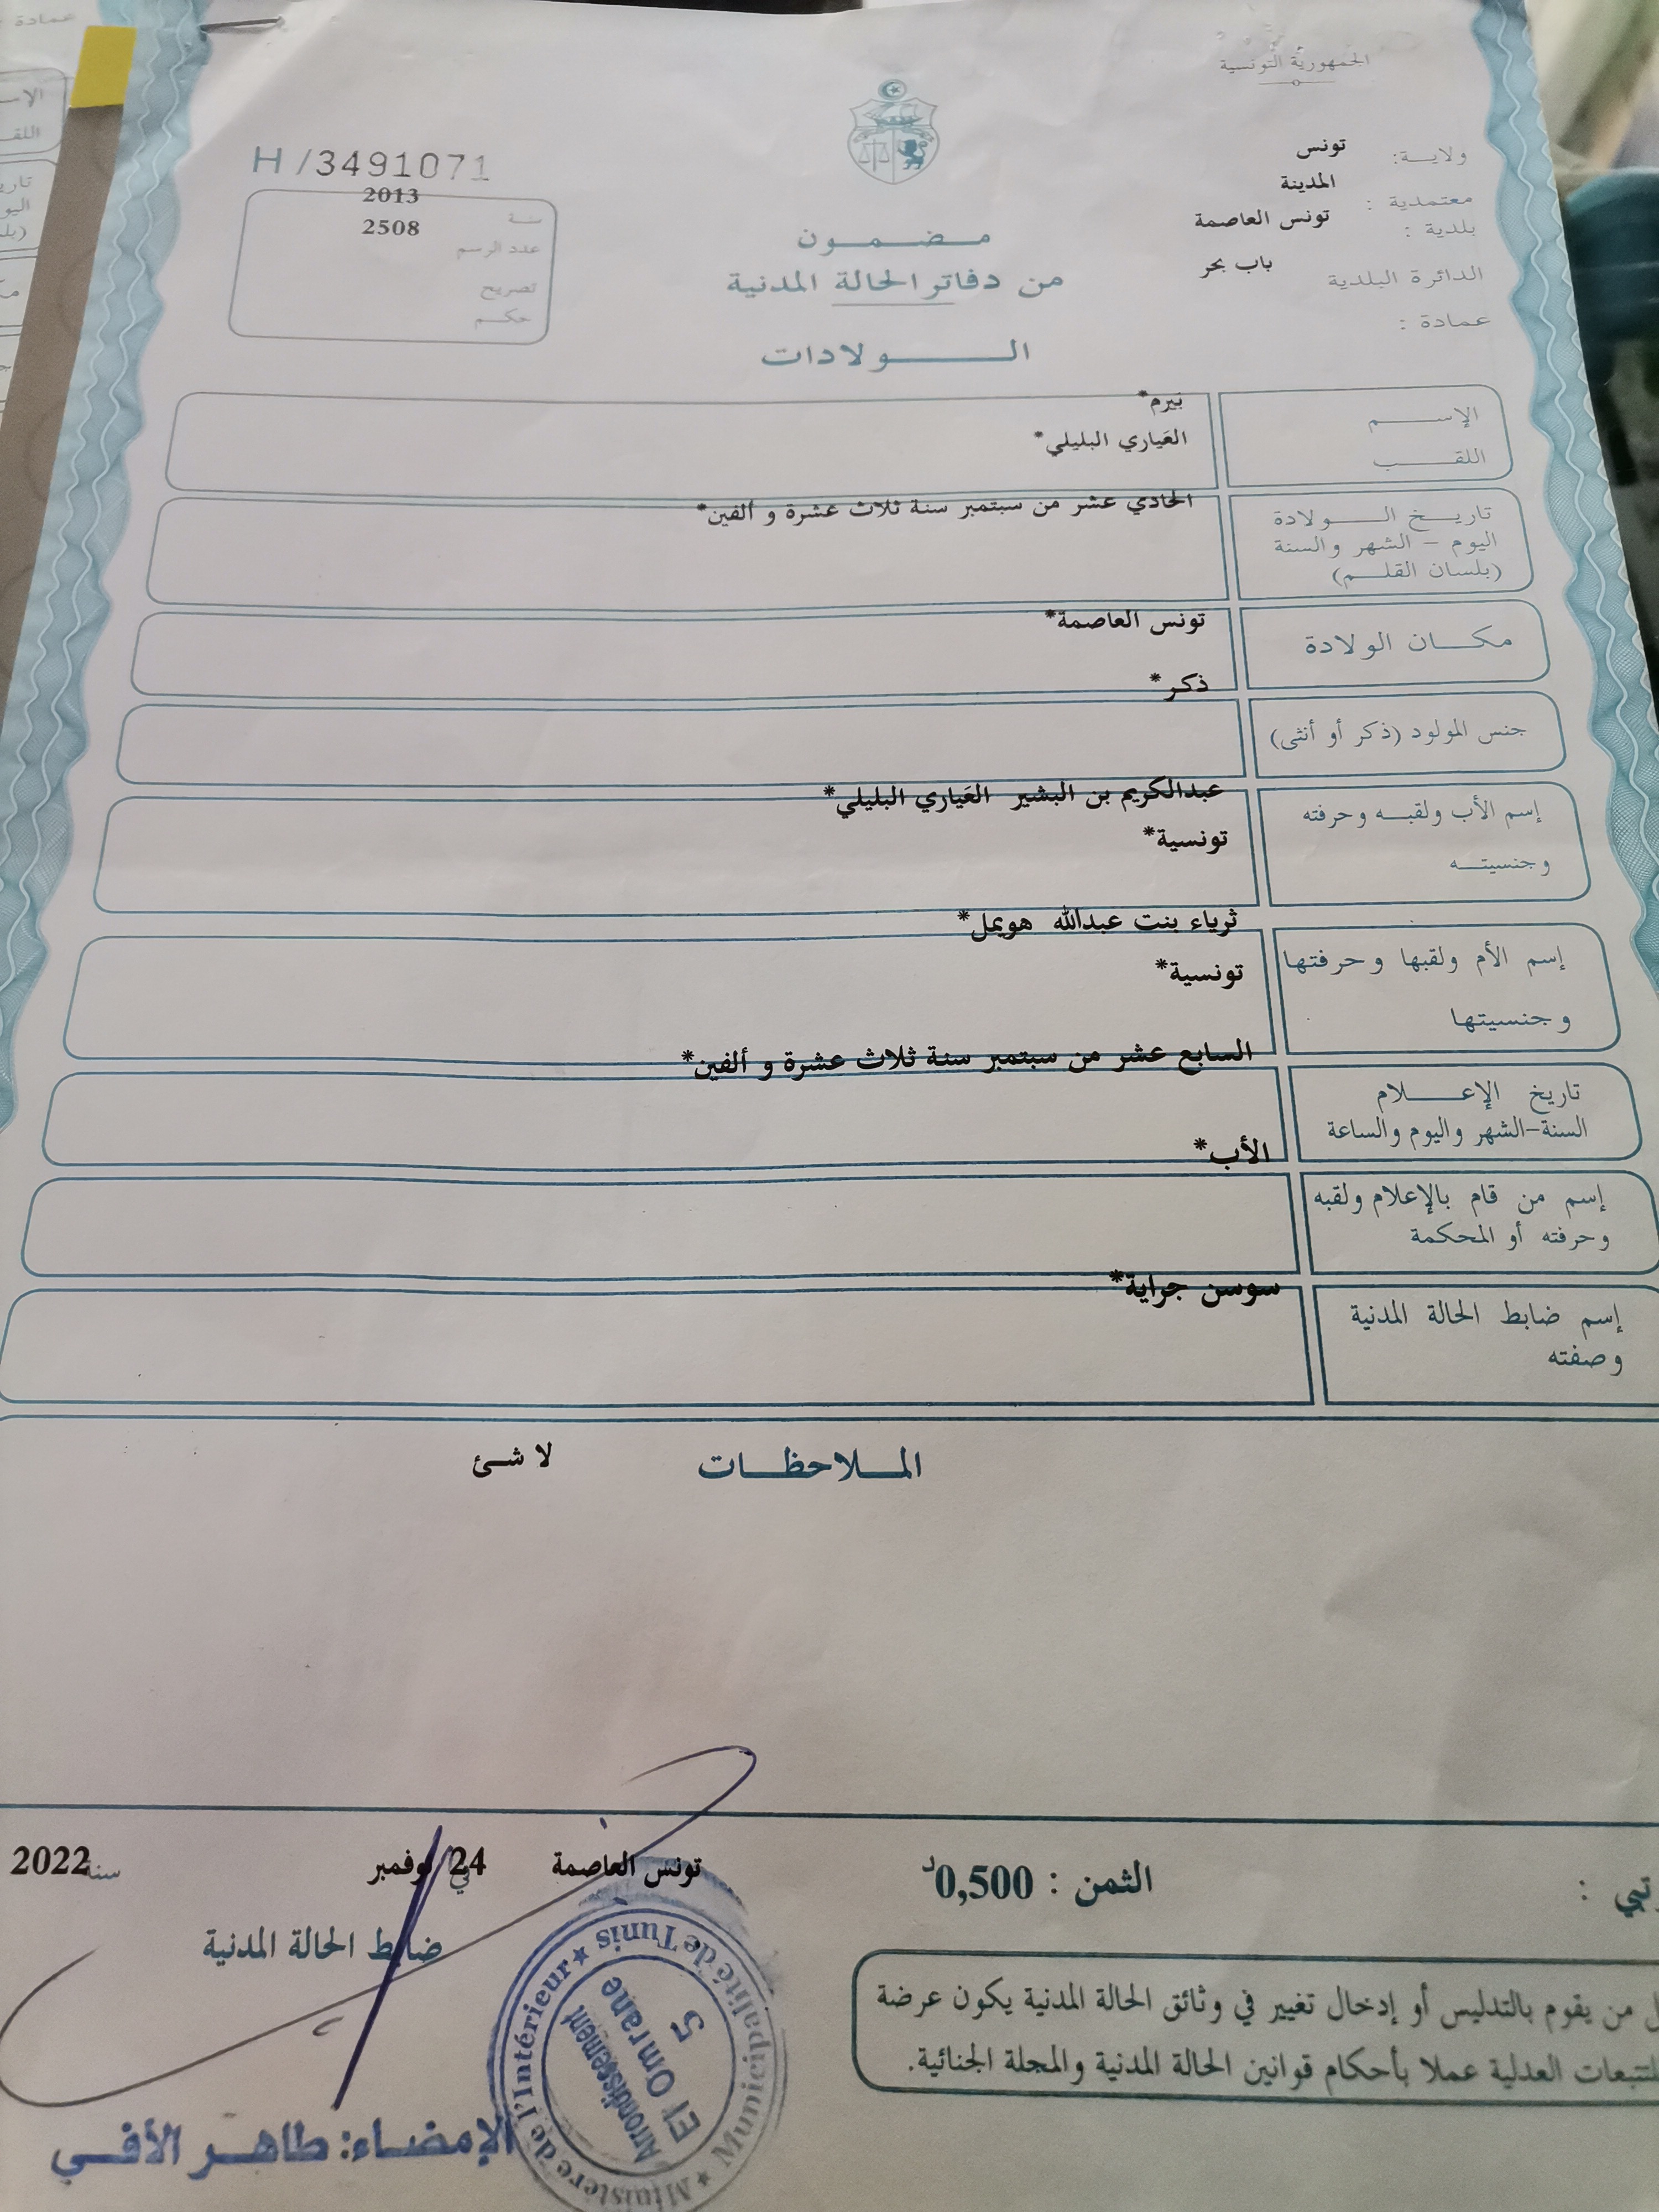 الجمهورية التونسية
ولاية: تونس
معتمدية : المدينة
بلدية : تونس العاصمة
الدائرة البلدية باب بحر
عمادة :
H /3491071
سنة 2013
عدد الرسم 2508
تصريح
حكم
مضمون
من دفاتر الحالة المدنية
الولادات
الإسم
بيرم*
اللقب
العَياري البليلي*
تاريخ الولادة
اليوم - الشهر والسنة
(بلسان القلم)
الحادي عشر من سبتمبر سنة ثلاث عشرة و ألفين*
مكان الولادة
تونس العاصمة*
جنس المولود (ذكر أو أنثى)
ذكر*
إسم الأب ولقبه وحرفته
وجنسيته
عبدالكريم بن البشير العَياري البليلي*
تونسية*
إسم الأم ولقبها وحرفتها
وجنسيتها
ثرياء بنت عبدالله هويمل*
تونسية*
تاريخ الإعلام
السنة-الشهر واليوم والساعة
السابع عشر من سبتمبر سنة ثلاث عشرة و ألفين*
إسم من قام بالإعلام ولقبه
وحرفته أو المحكمة
الأب*
إسم ضابط الحالة المدنية
وصفته
سوسن جراية*
الملاحظات
لا شئ
الثمن : 0,500د
تونس العاصمة في 24 نوفمبر سنة 2022
ضابط الحالة المدنية
من يقوم بالتدليس أو إدخال تغيير في وثائق الحالة المدنية يكون عرضة
للتتبعات العدلية عملا بأحكام قوانين الحالة المدنية والمجلة الجنائية.
Ministère de l'Intérieur ★ Municipalité de Tunis ★
Arrondissement
El Omrane
5
الإمضاء: طاهر الأفي